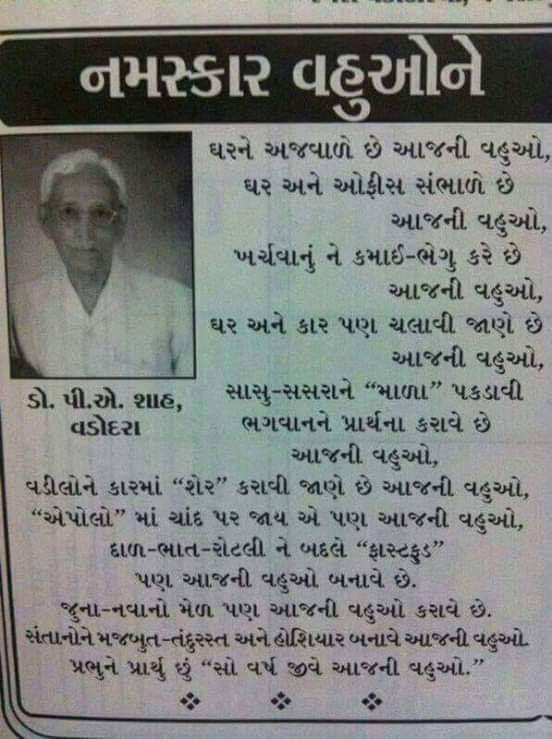 નમસ્કાર વહુઓને
ઘરને અજવાળે છે આજની વહુઓ,
ઘર અને ઓફીસ સંભાળે છે
આજની વહુઓ,
ખર્ચવાનું ને કમાઈ-ભેગુ કરે છે
આજની વહુઓ,
ઘર અને કાર પણ ચલાવી જાણે છે
આજની વહુઓ,
સાસુ-સસરાને “માળા” પકડાવી
ભગવાનને પ્રાર્થના કરાવે છે
આજની વહુઓ,
ડો. પી.એ. શાહ,
વડોદરા
વડીલોને કારમાં “શેર” કરાવી જાણે છે આજની વહુઓ,
“એપોલો” માં ચાંદ પર જાય એ પણ આજની વહુઓ,
દાળ-ભાત-રોટલી ને બદલે “ફાસ્ટફુડ”
પણ આજની વહુઓ બનાવે છે.
જુના-નવાનો મેળ પણ આજની વહુઓ કરાવે છે.
સંતાનોને મજબુત-તંદુરસ્ત અને હોશિયાર બનાવે આજની વહુઓ.
પ્રભુને પ્રાર્થુ છું “સો વર્ષ જીવે આજની વહુઓ.”